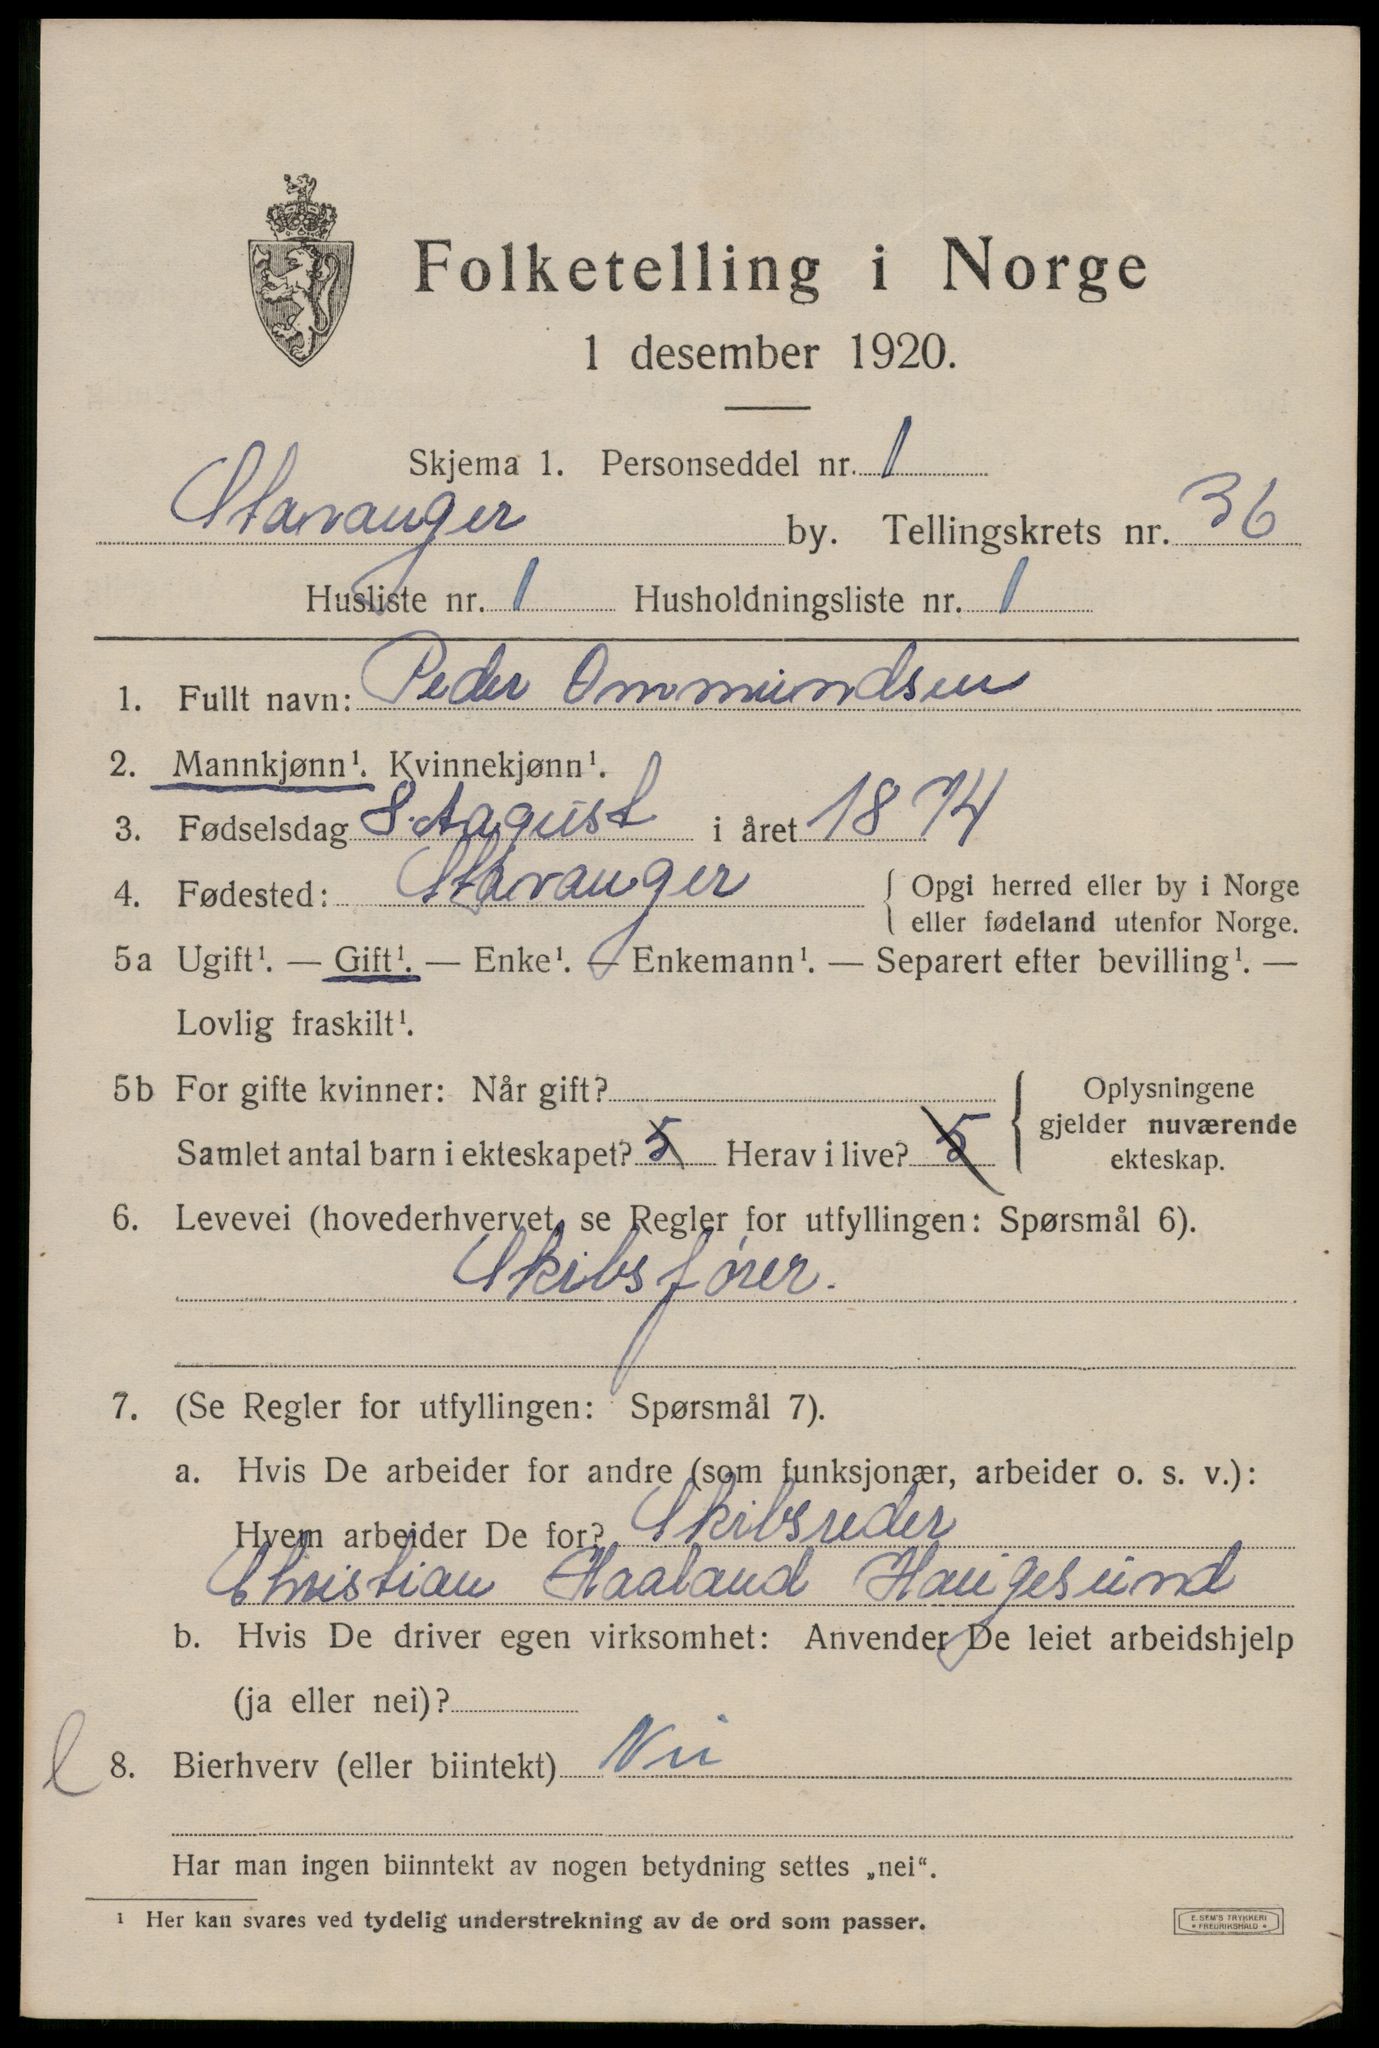 Folketelling i Norge
1 desember 1920.
Skjema 1. Personseddel nr. 1
Stavanger by. Tellingskrets nr. 36
Husliste nr. 1 Husholdningsliste nr. 1
1. Fullt navn: Peder Ommundsen
2. Mannkjønn¹. Kvinnekjønn¹.
3. Fødselsdag 8. August i året 1874
4. Fødested: Stavanger { Opgi herred eller by i Norge
eller fødeland utenfor Norge.
5a Ugift¹. — Gift¹. — Enke¹. — Enkemann¹. — Separert efter bevilling¹. —
Lovlig fraskilt¹.
5b For gifte kvinner: Når gift?
Samlet antal barn i ekteskapet? 5 Herav i live? 5
{ Oplysningene
gjelder nuværende
ekteskap.
6. Levevei (hovederhvervet, se Regler for utfyllingen: Spørsmål 6).
Skibsfører.
7. (Se Regler for utfyllingen: Spørsmål 7).
a. Hvis De arbeider for andre (som funksjonær, arbeider o. s. v.):
Hvem arbeider De for? Skibsreder
Christian Haaland Haugesund
b. Hvis De driver egen virksomhet: Anvender De leiet arbeidshjelp
(ja eller nei)?
l 8. Bierhverv (eller biintekt) Nei
Har man ingen biinntekt av nogen betydning settes „nei“.
¹ Her kan svares ved tydelig understrekning av de ord som passer.
E. SEM'S TRYKKERI
• FREDRIKSHALD •